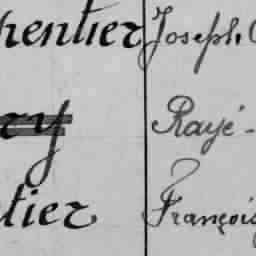 hentier Joseph
ry Rayé -
tier François